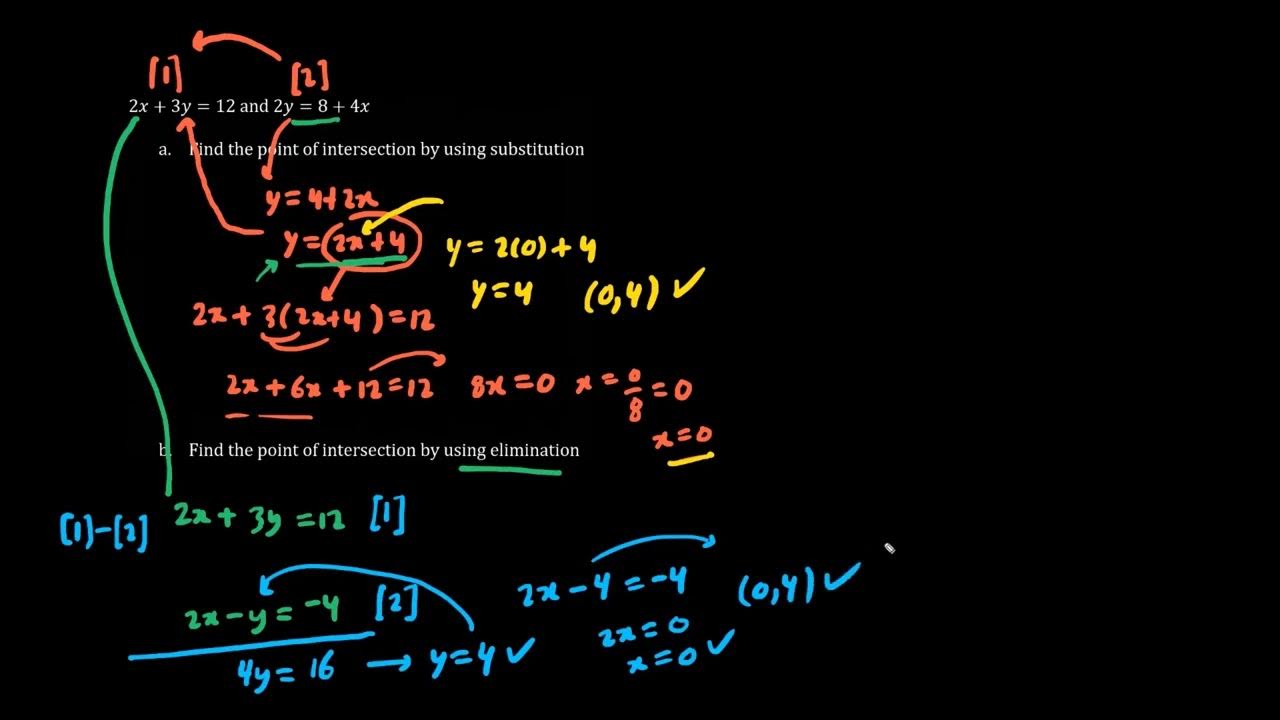 [1] [2]
2x + 3y = 12 and 2y = 8 + 4x
a. Find the point of intersection by using substitution
y = 4+2x
y = (2x+4)
y = 2(0) + 4
y = 4 (0,4) ✓
2x + 3(2x+4) = 12
2x + 6x + 12 = 12 8x = 0 x = 0/8 = 0
x = 0
b. Find the point of intersection by using elimination
[1]-[2] 2x + 3y = 12 [1]
2x - y = -4 [2]
4y = 16 → y = 4 ✓
2x - 4 = -4 (0,4) ✓
2x = 0
x = 0 ✓